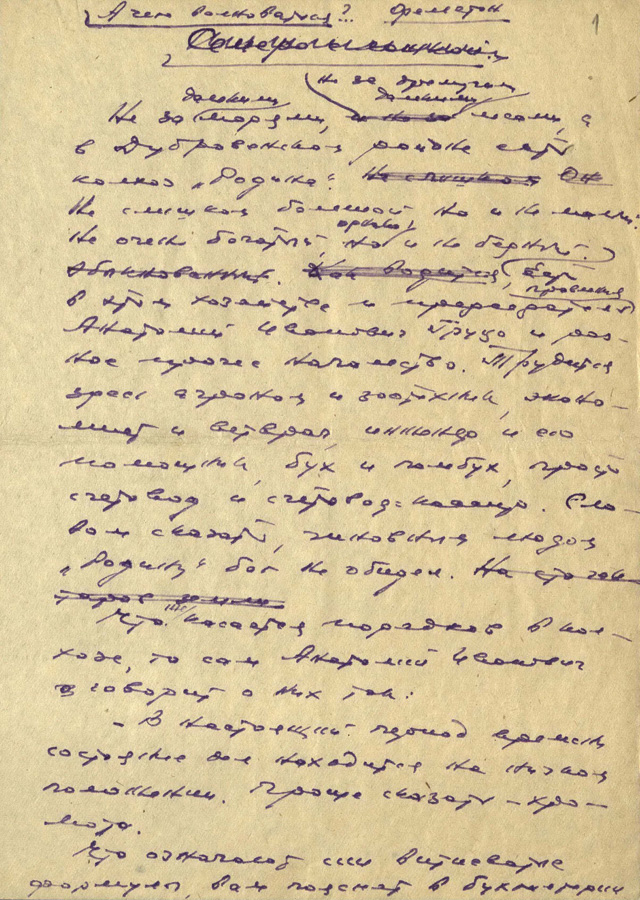 А чего волноваться?.. Фельетон
1
не за дремучими
дальними дальними
Не за морями, и не за лесами, а
в Дубровенском районе есть
колхоз „Родина". Не слишком Он
Не слишком большой но и не малый.
однако
Не очень богатый, но и не бедный.
Обыкновенный. Как водится, Есть
правление
в этом хозяйстве и председатель
Анатолий Иванович Грузо и раз-
ное прочее начальство. Трудятся
здесь агроном и зоотехник, эконо-
мист и ветврач, инженер и его
помощник, бух и замбух, просто
счетовод и счетовод-кассир. Сло-
вом сказать, чиновным людом
„Родину" бог не обидел.
Что касается порядков в кол-
хозе, то сам Анатолий Иванович
говорит о них так:
– В настоящий период времени
состояние дел находится на низком
положении. Проще сказать – хро-
мота.
Что означают сии витиеватые
формулы, вам пояснят в бухгалтерии